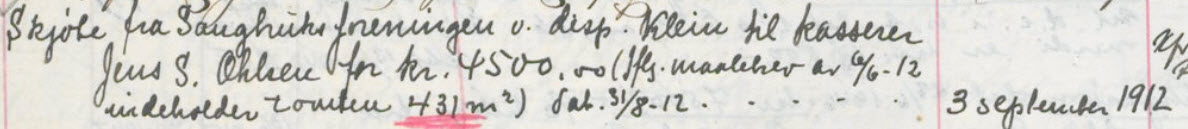 Skjøte fra Saugbruksforeningen v. disp. Klein til kasserer
Jens S. Ohlsen for kr. 4500.00 (Iflg. maalebrev av 6/6-12
indeholder tomten 431 m²) dat. 31/8-12 . . . . . 3 september 1912